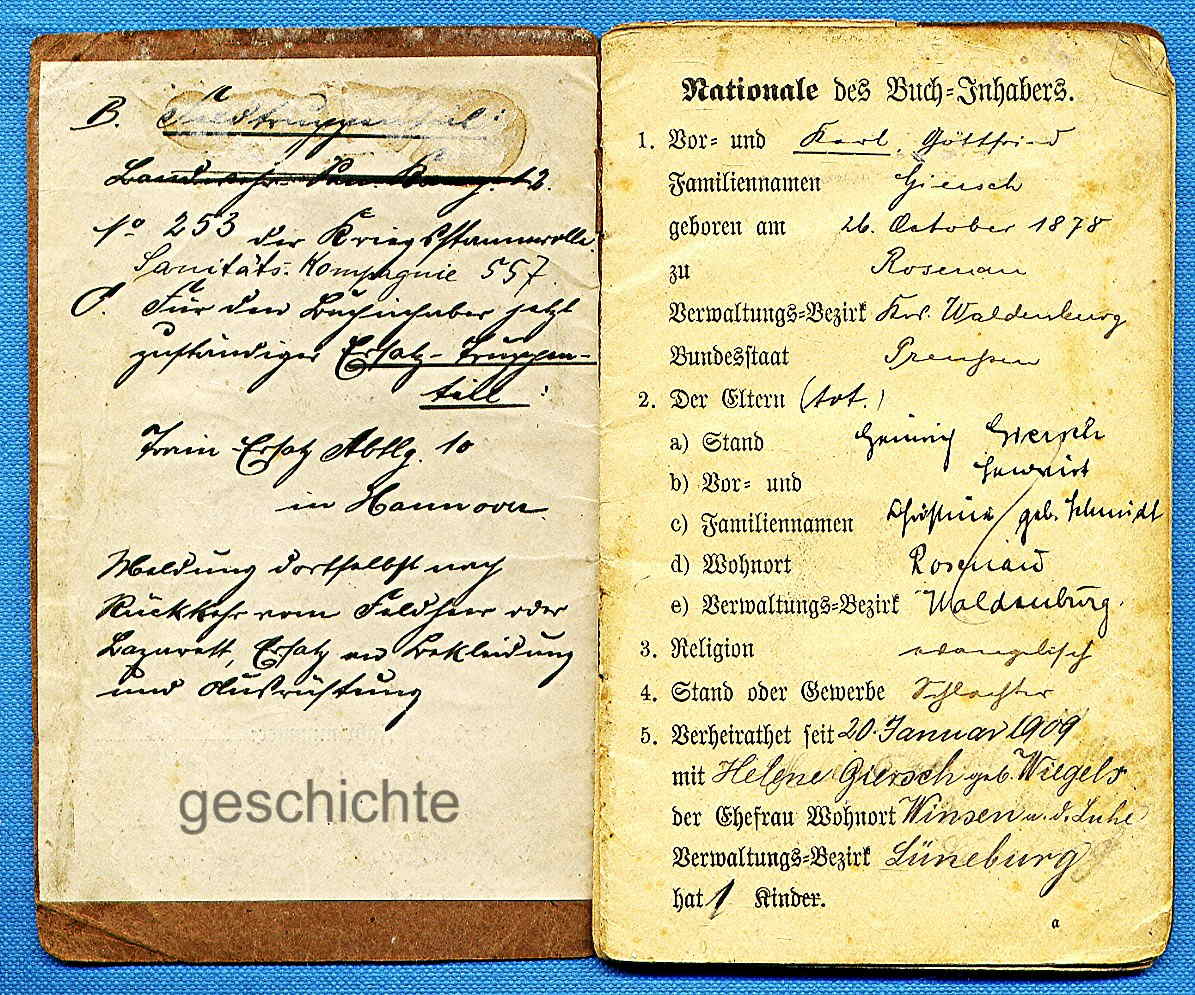 B. Feldtruppenteil:
Landwehr San. Komp. 12.
No 253 der Kriegsstammrolle.
Sanitäts-Kompagnie 557.
C. Für den Buchinhaber jetzt
zuständiger Ersatz-Truppen-
teil:
Train-Ersatz Abtlg. 10
in Hannover.
Meldung dortselbst nach
Rückkehr vom Feldheer oder
Lazarett, Ersatz an Bekleidung
und Ausrüstung
geschichte
Nationale des Buch-Inhabers.
1. Vor- und Karl, Gottfried
Familiennamen Giersch
geboren am 26. October 1878
zu Rosenau
Verwaltungs-Bezirk Krs. Waldenburg
Bundesstaat Preußen
2. Der Eltern (tot.)
a) Stand Heinrich Giersch
b) Vor- und
c) Familiennamen Christine geb. Schmidt
d) Wohnort Rosenau
e) Verwaltungs-Bezirk Waldenburg.
3. Religion evangelisch
4. Stand oder Gewerbe Schlachter
5. Verheirathet seit 20. Januar 1909
mit Helene Giersch geb. Wiegels
der Ehefrau Wohnort Winsen a. d. Luhe
Verwaltungs-Bezirk Lüneburg
hat 1 Kinder.
a